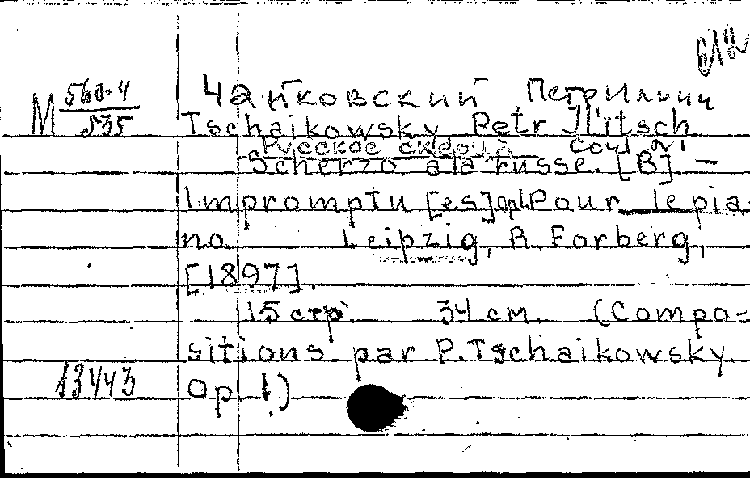 М 560-4/535
Чайковский Петр Ильич
Tschaikowsky Petr Ilitsch
Русское скерцо Соч. №1
Scherzo à la russe. [B]. —
Impromptu [es] op1. Pour le pia-
no. Leipzig, R. Forberg,
[1897].
15 стр. 34 см. (Compo-
sitions par P. Tschaikowsky.
13443 Op. 1.)